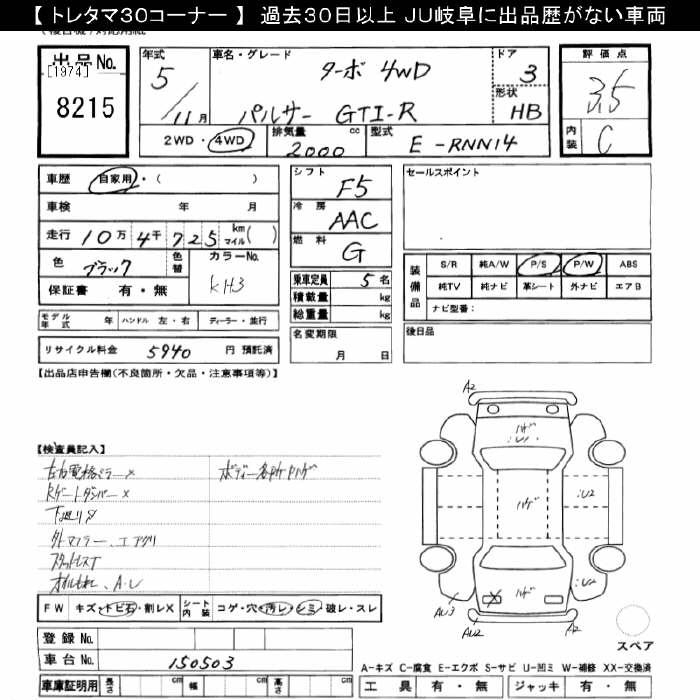 【 トレタマ30コーナー 】 過去30日以上 JU岐阜に出品歴がない車両
出品No.
[1974]
8215
年式
5/11月
車名・グレード
ターボ 4WD
パルサー GTI-R
ドア
3
形状
HB
2WD・4WD
排気量 cc
2000
型式
E-RNN14
評価点
3.5
内装
C
車歴 自家用・( )
車検 年 月
走行 10万 4千 7 2 5 km マイル( )
色 ブラック 色替
カラーNo.
KH3
保証書 有・無
モデル年式 年 ハンドル 左・右 ディーラー・並行
リサイクル料金 5940 円 預託済
シフト
F5
冷房
AAC
燃料
G
乗車定員 5 名
積載量 kg
総重量 kg
名変期限
月 日
セールスポイント
装備品
S/R 純A/W P/S P/W ABS
純TV 純ナビ 革シート 外ナビ エアB
ナビ型番:
後日品
【出品店申告欄(不良箇所・欠品・注意事項等)】
【検査員記入】
左右電格ミラー×
Rゲートダンパー×
下廻りサ
外マフラー、エアクリ
スタットレスT
オイルもれ、A・U
ボディー各所PハゲF W キズ・トビ石・割レX
シート内装 コゲ・穴・汚レ・シミ・破レ・スレ
登録No.
車台No. 150503
車庫証明用 長さ cm 幅 cm 高さ cm
A2
ハゲ
:U1
ハゲ
:U2
ハゲ
:U2
AU3
AU2
A2
スペア
A-キズ C-腐食 E-エクボ S-サビ U-凹ミ W-補修 XX-交換済
工具 有・無 ジャッキ 有・無